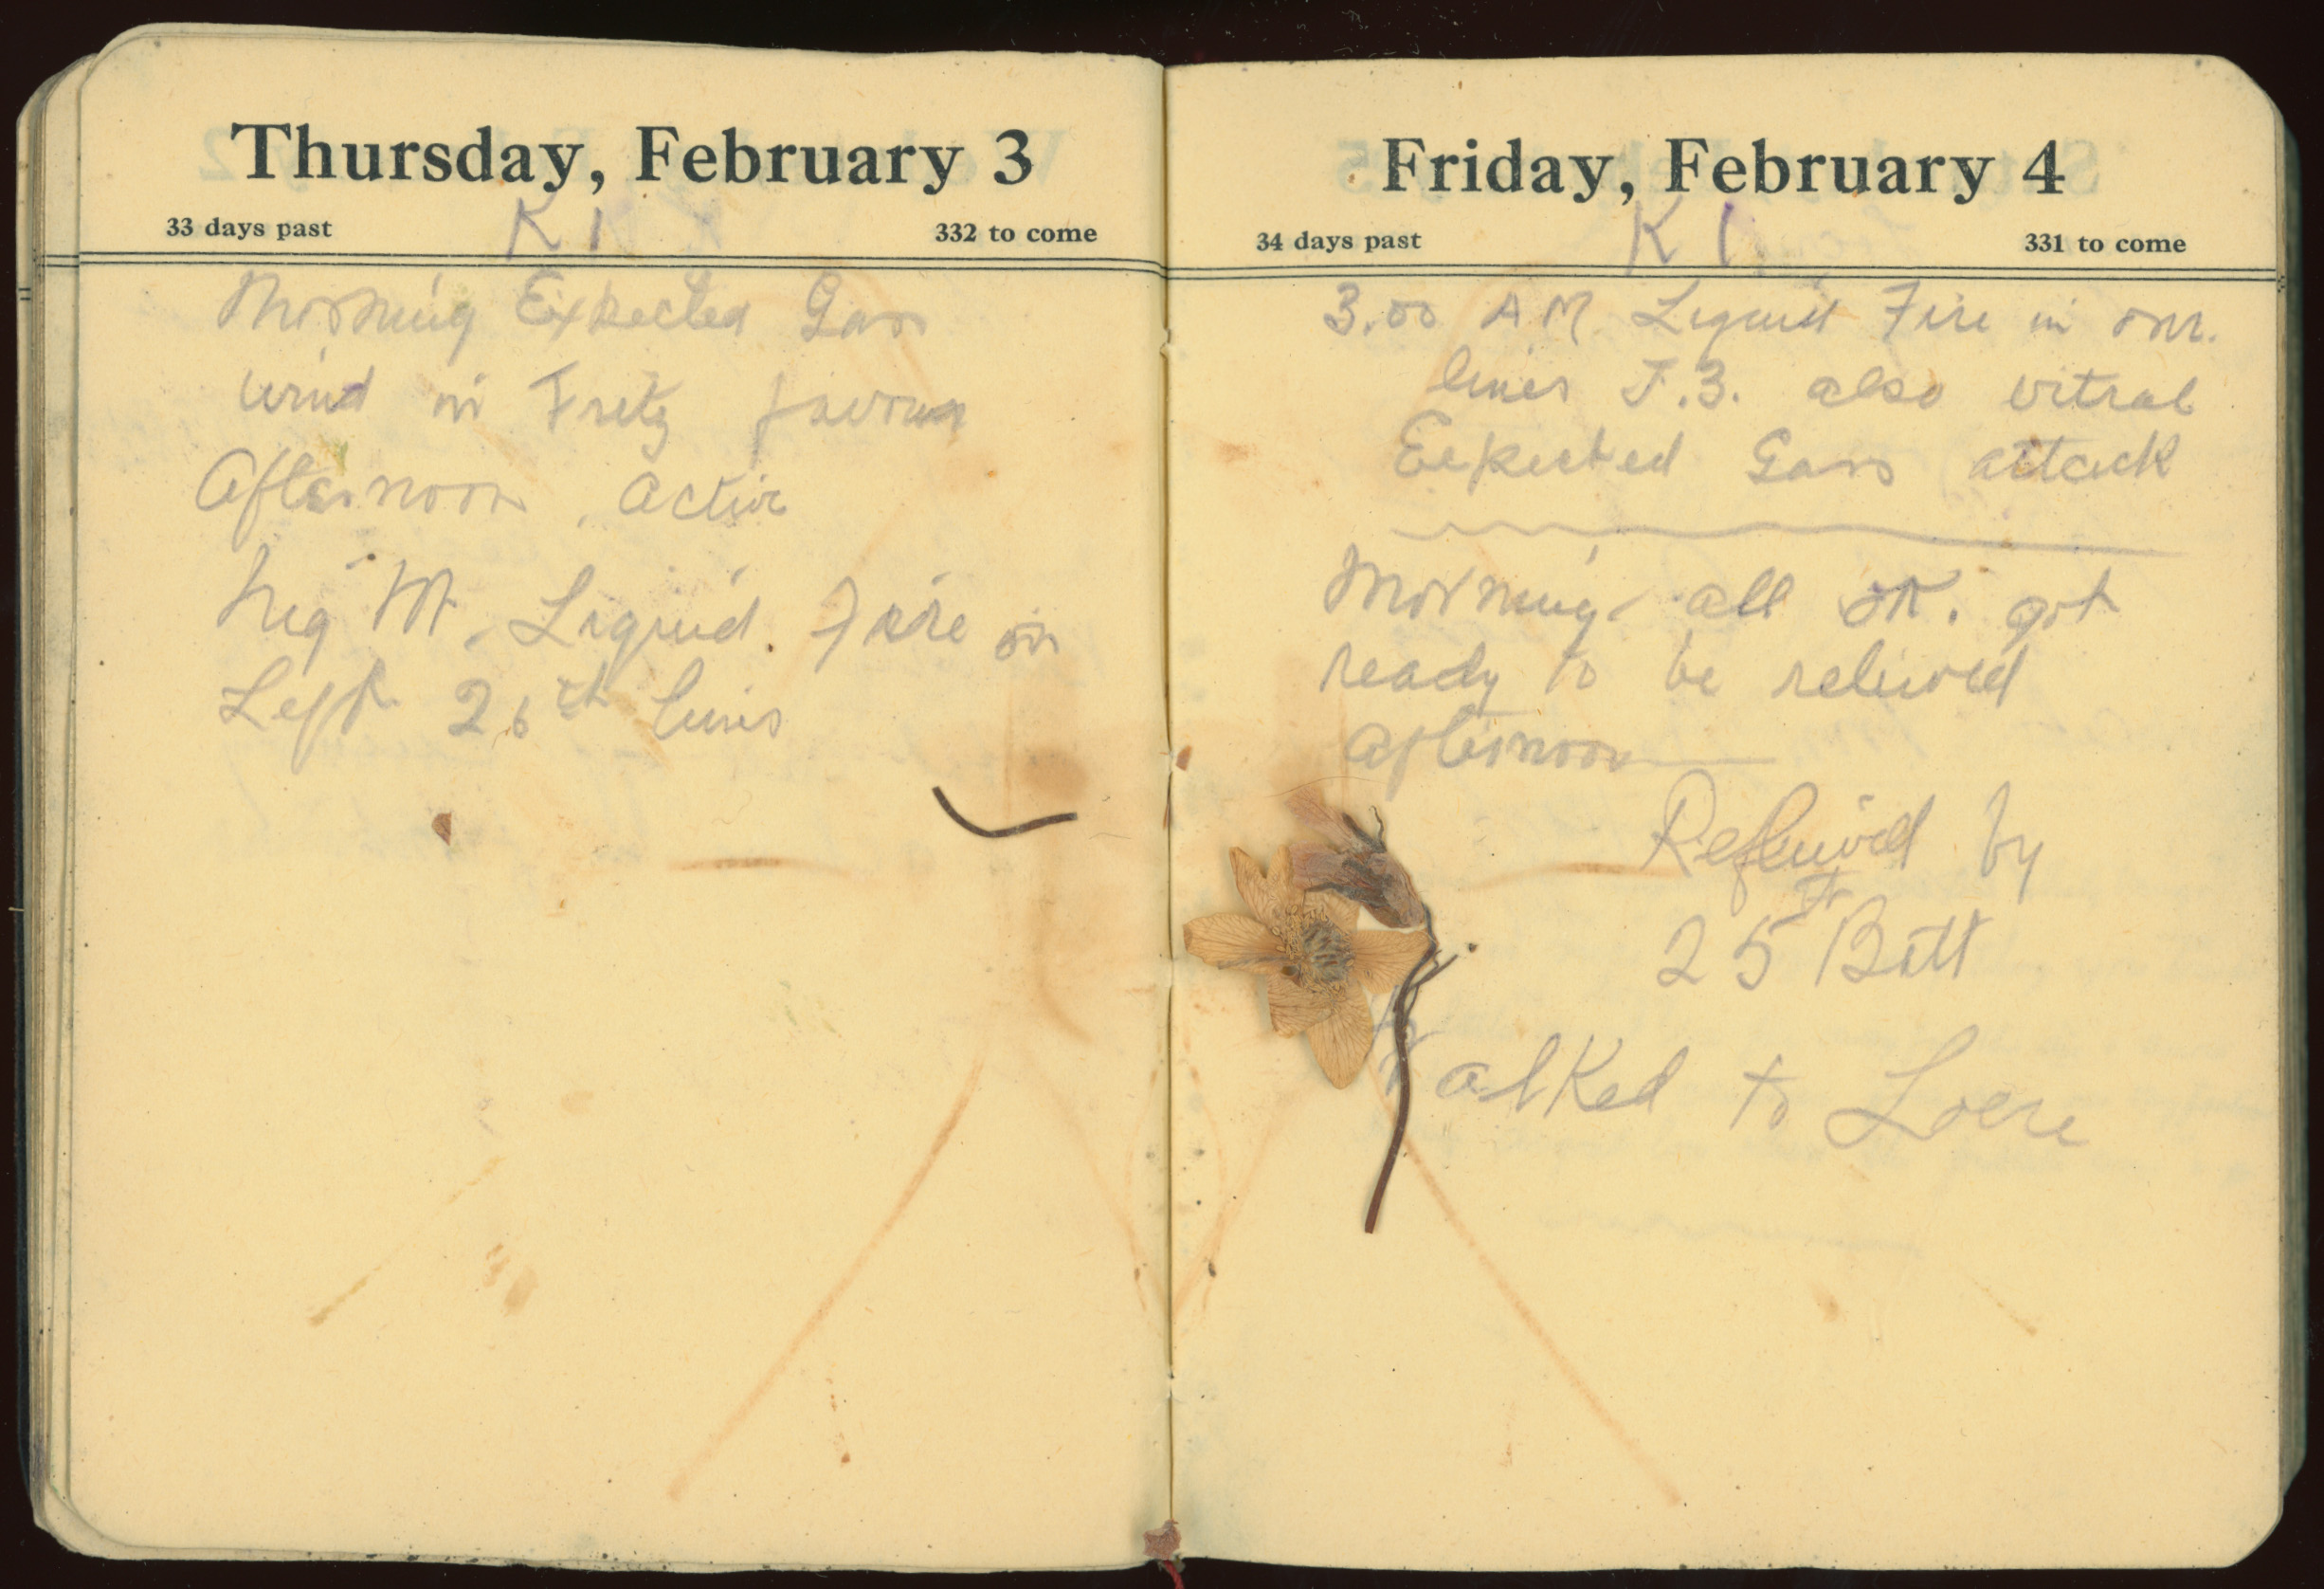 Thursday, February 3
33 days past K1 332 to come
Morning Expected Gass
wind in Fritz favour
Afternoon, active
Night Liquid Fire on
Left 26th lines
Friday, February 4
34 days past K1 331 to come
3.00 AM Liquid Fire in our
lines J.3. also vitrol
Expected Gass attack
Morning all OK. got
ready to be relieved
afternoon
Relieved by
25th Batt
Walked to Locre